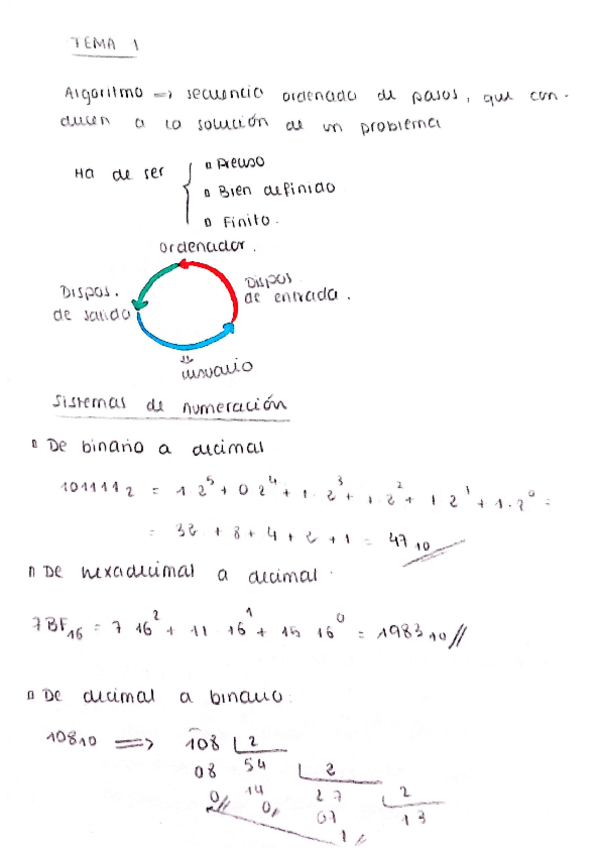 TEMA 1
Algoritmo => secuencia ordenada de pasos, que con-
ducen a la solución de un problema
Ha de ser
▫ Preciso
▫ Bien definido
▫ Finito.
ordenador.
Dispos.
de salida
Dispos
de entrada.
usuario
Sistemas de numeración
▫ De binario a decimal
101111₂ = 1 2⁵ + 0 2⁴ + 1 · 2³ + 1 · 2² + 1 2¹ + 1 · 2⁰ =
= 32 + 8 + 4 + 2 + 1 = 47₁₀
▫ De hexadecimal a decimal.
7BF₁₆ = 7 16² + 11 16¹ + 15 16⁰ = 1983₁₀//
▫ De decimal a binario:
108₁₀ => 108 | 2
08 54 | 2
0// 14 27 | 2
0// 07 13
1//